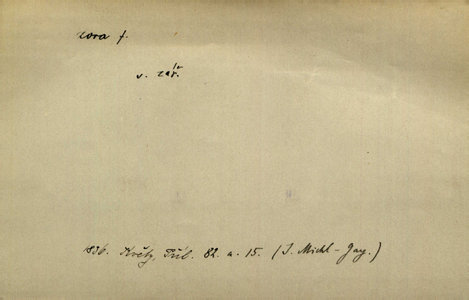 zora f.
v. zář.
1836. Květy, Příl. 82. a. 15. (J. Michl - Jay.)